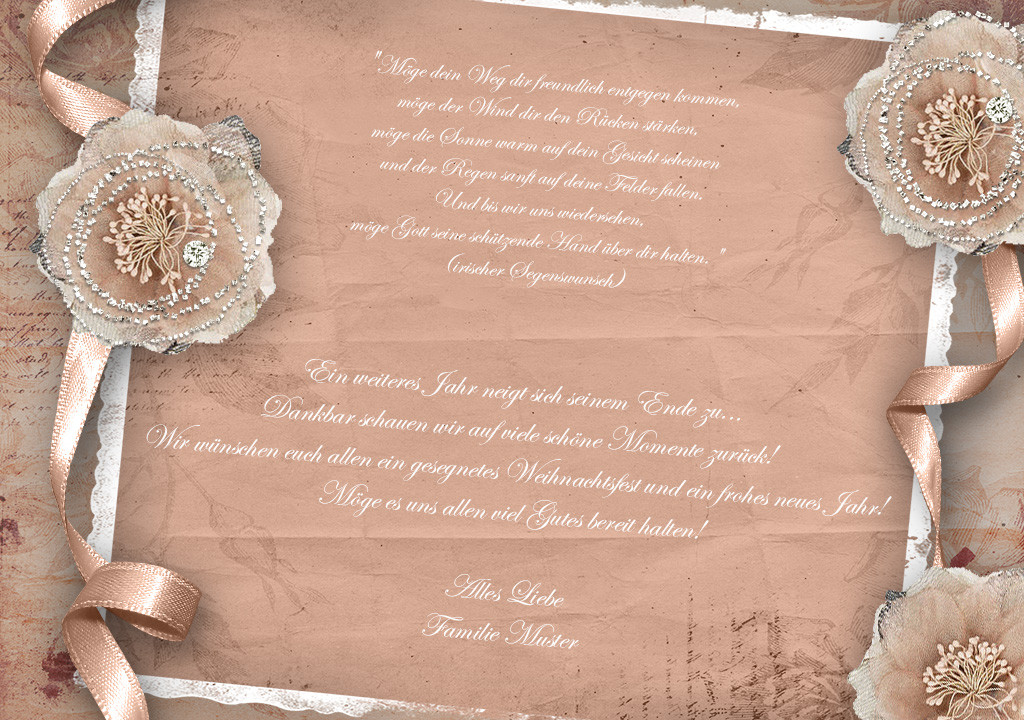 "Möge dein Weg dir freundlich entgegen kommen,
möge der Wind dir den Rücken stärken,
möge die Sonne warm auf dein Gesicht scheinen
und der Regen sanft auf deine Felder fallen.
Und bis wir uns wiedersehen,
möge Gott seine schützende Hand über dir halten. "
(irischer Segenswunsch)
Ein weiteres Jahr neigt sich seinem Ende zu...
Dankbar schauen wir auf viele schöne Momente zurück!
Wir wünschen euch allen ein gesegnetes Weihnachtsfest und ein frohes neues Jahr!
Möge es uns allen viel Gutes bereit halten!
Alles Liebe
Familie Muster